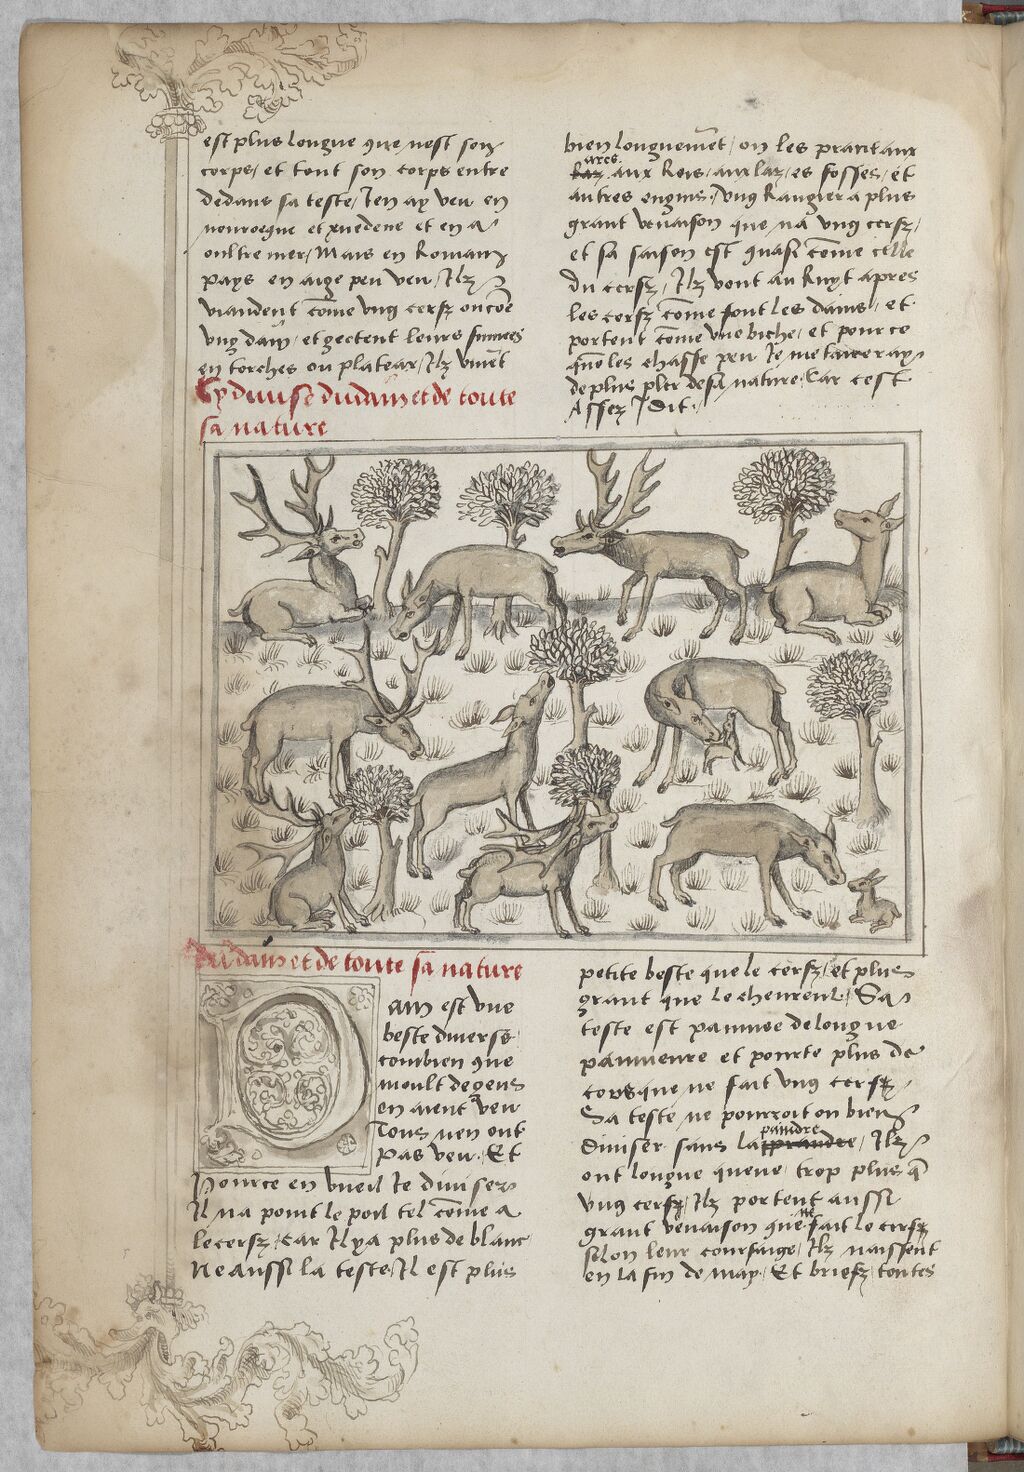 est plus longue que nest son
corps / et tout son corps entre
dedans sa teste / Jen ay veu en
nouroegue et xuedene et en a
oultre mer / Mais en Romain
pays en aige peu veu / Jlz
viandent cõme ung cerfz ou cõe
ung dain / et gectent leurs fumees
en torches ou plateax / Jlz vivẽt
bien longuement / on les prant aux
arcs
aux Rois / aux laz / es fosses / et
autres engins / Ung Rangier a plus
grant venaison que na ung cerfz /
et sa saison est quasi cõme celle
du cerfz / Jlz vont au Ruyt apres
les cerfz cõme font les dains / et
portent cõme une biche / et pour ce
quõ les chasse peu Je me taireray
de plus pler de sa nature / Car cest
Assez Dit.
Cy devise du dain et de toute
sa nature
Du dain et de toute sa nature
Dam est une
beste diverse
combien que
moult de gens
en aient veu
Tous nen ont
pas veu. Et
Pource en vueil Je diviser
Jl na point le poil tel cõme a
le cerfz / car Jl y a plus de blanc
Ne aussi la teste / Jl est plus
petite beste que le cerfz / et plus
grant que le chevreul / Sa
teste est paumee de longue
paumeure et pourte plus de
cors que ne fait ung cerfz /
Sa teste ne pourroit on bien
paindre
diviser sans la / Jlz
ont longue queue trop plus q̃
ung cerfz / Jlz portent aussi
ne
grant venaison que fait le cerfz
selon leur coursaige / Jlz naissent
en la fin de may / Et briefz / toutes